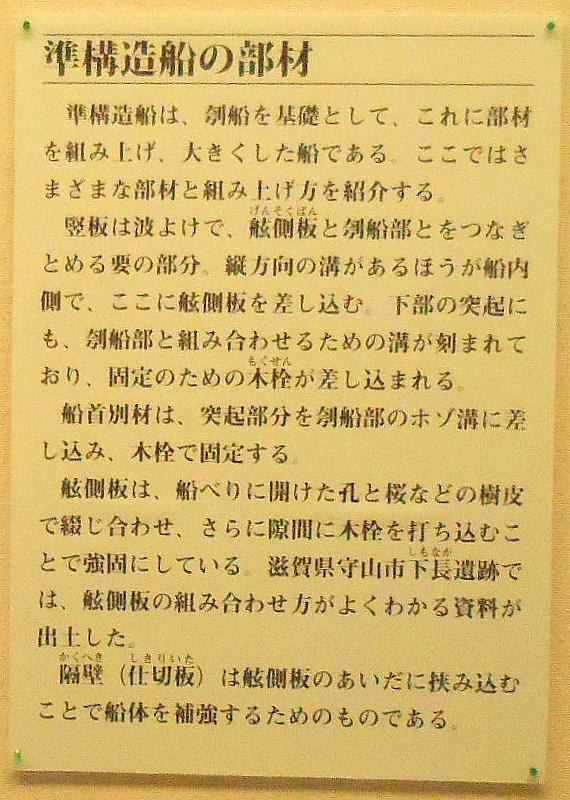 準構造船の部材
準構造船は、刳船を基礎として、これに部材
を組み上げ、大きくした船である。ここではさ
まざまな部材と組み上げ方を紹介する。
げんそくばん
竪板は波よけで、舷側板と刳船部とをつなぎ
とめる要の部分。縦方向の溝があるほうが船内
側で、ここに舷側板を差し込む。下部の突起に
も、刳船部と組み合わせるための溝が刻まれて
もくせん
おり、固定のための木栓が差し込まれる。
船首別材は、突起部分を刳船部のホゾ溝に差
し込み、木栓で固定する。
舷側板は、船べりに開けた孔と桜などの樹皮
で綴じ合わせ、さらに隙間に木栓を打ち込むこ
しもなが
とで強固にしている。滋賀県守山市下長遺跡で
は、舷側板の組み合わせ方がよくわかる資料が
出土した。
かくへき しきりいた
隔壁（仕切板）は舷側板のあいだに挟み込む
ことで船体を補強するためのものである。